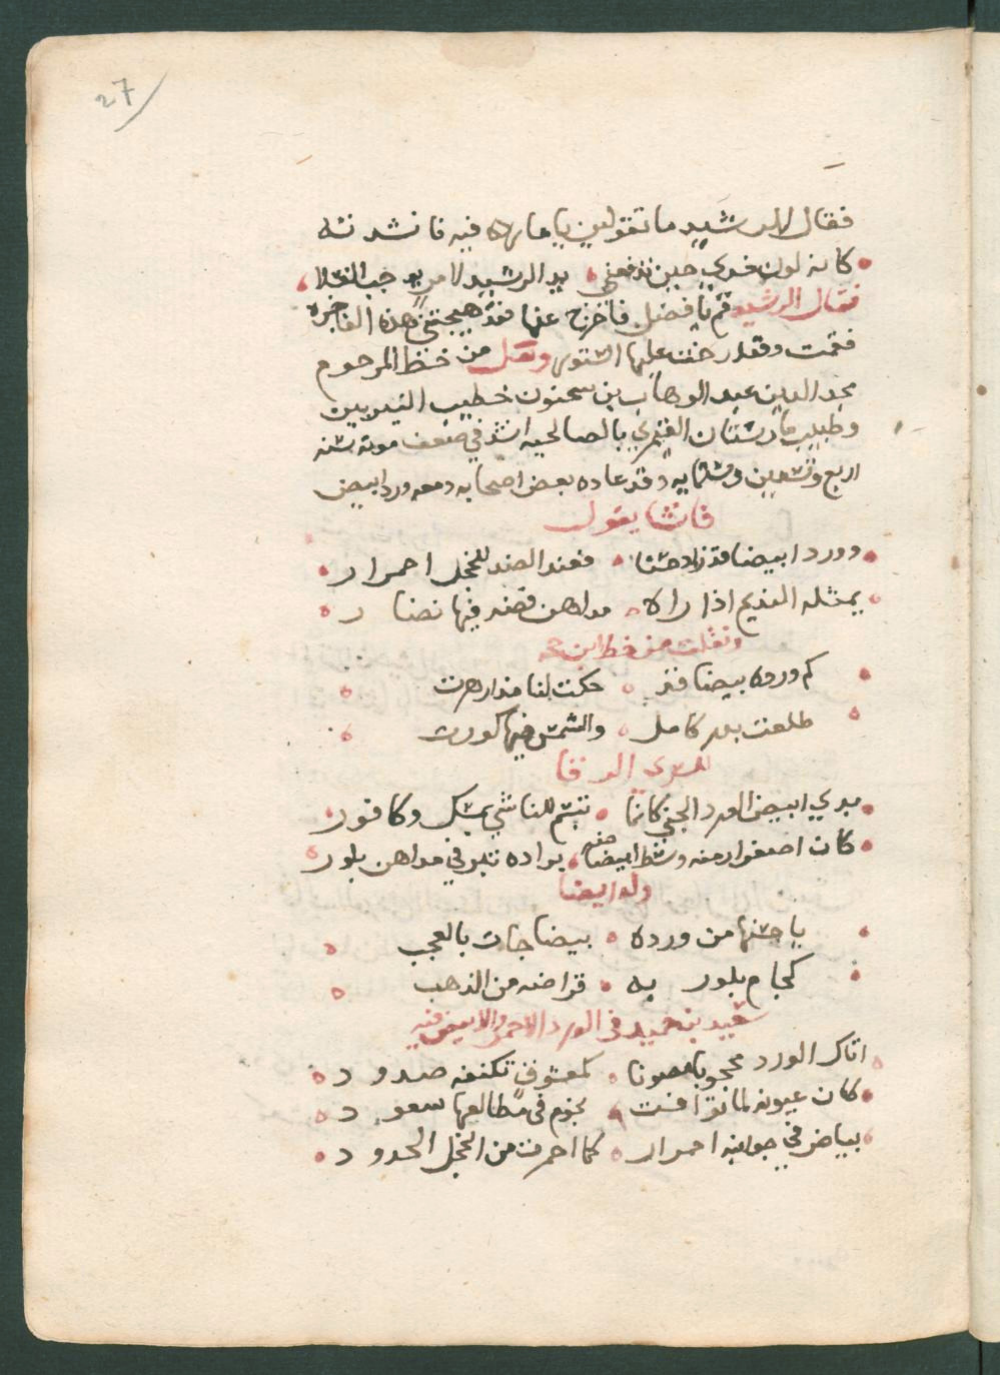 27
فقال الرشيد ما تقولين يا ماريه فيه فانشدته
كانه لون خدي حين تدفعني يد الرشيد لامر يوجب الغسلا
فقال الرشيد قم يا فضل فاخرج عنا فقد هيجتني هذه الفاجره
فقمت وقد ارخت عليها الستور ونقل من خط المرحوم
مجد الدين عبد الوهاب بن سحنون خطيب النيربين
وطبيب مارستان القيمري بالصالحيه انشد في ضعف موته سنه
اربع وتسعين وستمايه وقد عاده بعض اصحابه ومعه ورد ابيض
فانشا يقول
وورد ابيض قد زاد حسنا فعند الصد للخجل احمرار
يمثله النديم اذا راه مداهن فضه فيها نضار
ونقلت من خط ابن
كم ورده بيضا قد حكت لنا مذ ازهرت
طلعت بدر كامل والشمس فيها كورت
للسري الرفا
بدي ابيض الورد الجني كانما تبسم للناشي بمسك وكافور
كان اصفرارا منه وسط ابيضاضه براده تبر في مداهن بلور
وله ايضا
يا حسنها من ورده بيضا جات بالعجب
كجام بلور به قراضه من الذهب
سعيد بن حميد في الورد الاحمر والابيض فيه
اتاك الورد محجوبا مصونا كمعشوق تكنفه صدود
كان عيونه لما توافت نجوم في مطالعها سعود
بياض في جوانبه احمرار كما احمرت من الخجل الخدود